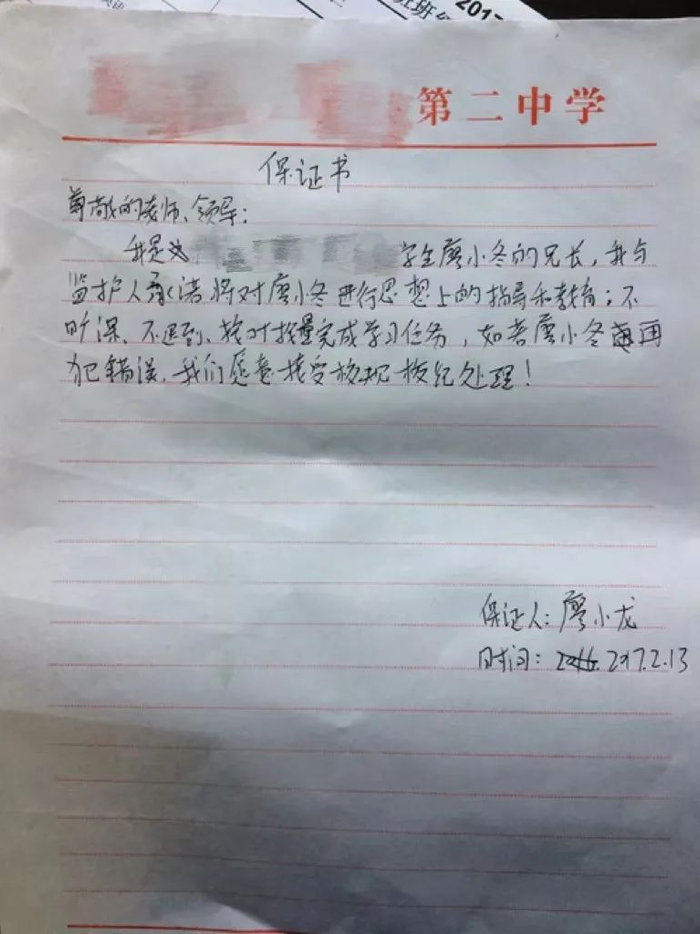 2017
第二中学
保证书
尊敬的老师、领导：
我是 学生廖小冬的兄长，我与
监护人承诺将对廖小冬进行思想上的指导和教育；不
旷课、不迟到、按时按量完成学习任务，如若廖小冬再
犯错误，我们愿意接受校规校纪处理！
保证人：廖小龙
时间：2016. 2017.2.13